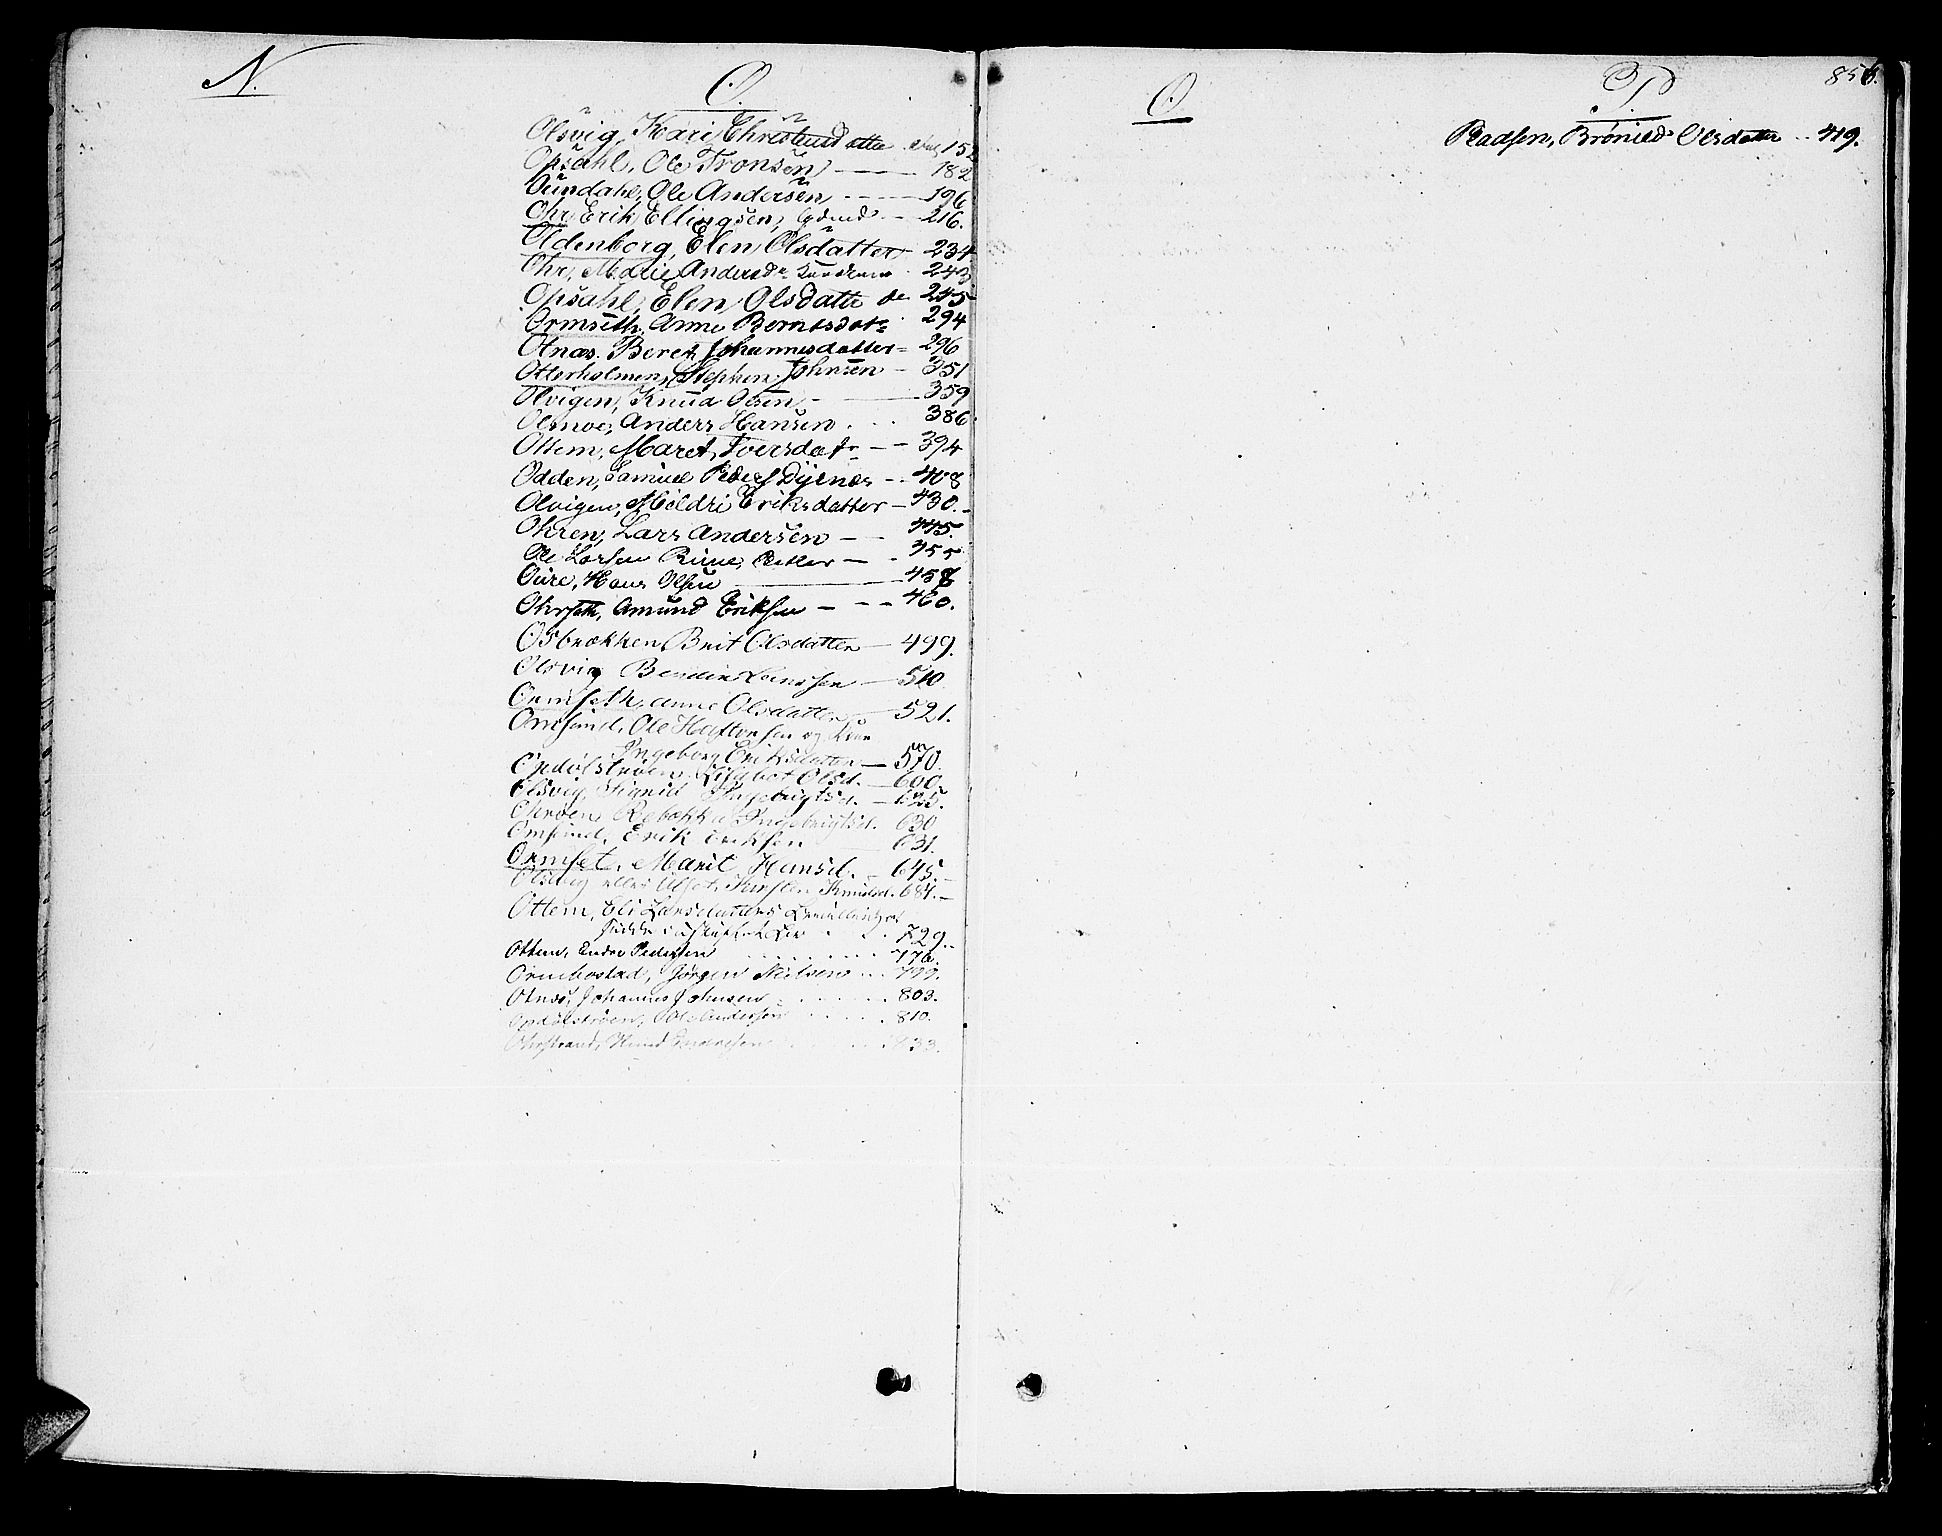 N.
O.
Olsvig, Kari Christensdatter 152
Opsahl, Ole Tronsen 182
Oündahl, Ole Andersen 196
Ohr, Erik Ellingsen, 216.
Oldenborg, Elen Olsdatter 234
Ohr, Marie Andersd. 243
Opsahl, Elen Olsdatter do 245
Ormseth, Anne Berntsdat. 294
Otnæs. Beret Johannesdatter 296
Otterholmen, Stephen Johnsen 351
Olvigen, Knud Olsen 359
Olsmoe, Anders Hansen 386
Ottem, Maret Iversdatr. 394
Odden, Samuel Peders. 408
Olvigen, Mildri Eriksdatter 430.
Ohren, Lars Andersen 445.
Ole Larsen 455
Oure, Hans Olsen 458
Ohrseth, Amund Eriksen 460.
Osbrækken Brit Olsdatter 499.
Olsvig Larssen 510
Ormseth, Anne Olsdatter 521.
Omsund, Ole Haftorsen og Kone
Ingeborg Eriksdatter 570.
Opdølstrøen, Olsd. 600.
Olsvig, Sigrid Ingebrigtsd.
Ohrøen, Rebekka Ingebrigtsd. 630
Omsund, Erik Eriksen 631.
Ormset, Marit Hansd. 645.
Olsvig eller Kirsten Knudsd. 684.
Ottem, Eli Larsdatters
729.
Ottem, Endre Pedersen 776.
Ormbostad, Jørgen Nielsen 799.
Otnæs, Johannes Johnsen 803.
Opdølstrøen, Ole Andersen 810.
Ohrstrand, 833.
O.
P
856.
Pladsen, Brønild Olsdatter 419.